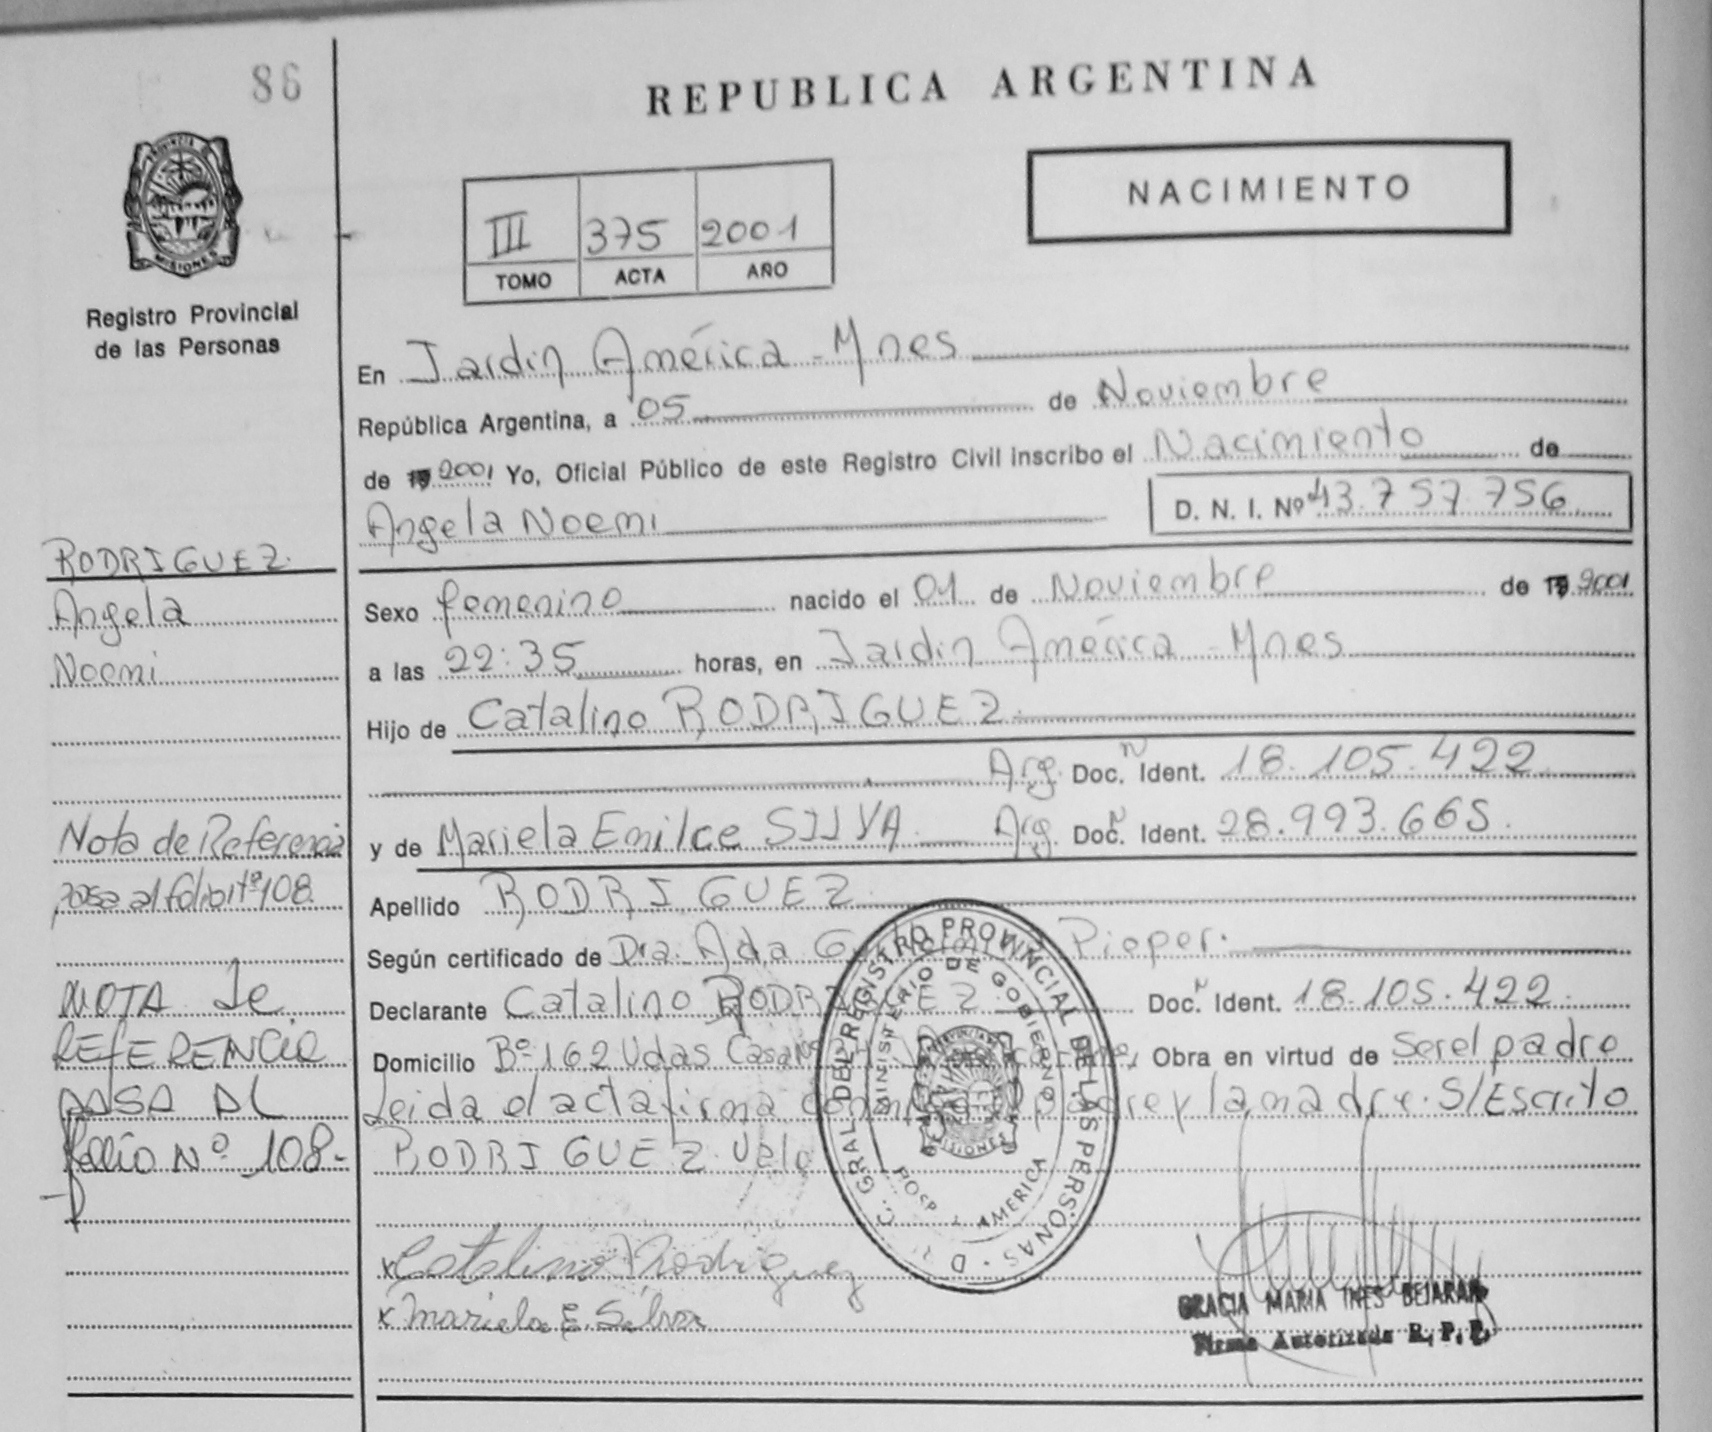 86
REPUBLICA ARGENTINA
NACIMIENTO
III 375 2001
TOMO ACTA AÑO
MISIONES
Registro Provincial
de las Personas
En Jardin América - Mnes
República Argentina, a 05 de Noviembre
de 19 2001 Yo, Oficial Público de este Registro Civil inscribo el Nacimiento de
Angela Noemi D. N. I. Nº 43.757.756
RODRIGUEZ
Angela
Noemi
Sexo femenino nacido el 01 de Noviembre de 19 2001
a las 22:35 horas, en Jardin América - Mnes
Hijo de Catalino RODRIGUEZ
Arg. Doc. n Ident. 18.105.422
y de Mariela Emilce SILVA Arg. Doc. n Ident. 28.993.665
Apellido RODRIGUEZ
Según certificado de Dra. Ada Pieper.
Declarante Catalino RODRIGUEZ Doc. n Ident. 18.105.422
Domicilio Bº 162 Vdas Casa Nº Obra en virtud de Ser el padre
Leida el acta firma conmigo el padre y la madre. S/Escrito
RODRIGUEZ. Vale
Nota de Referencia
pasa al folio Nº 108
NOTA de
REFERENCIA
PASA AL
folio Nº 108-
DIREC. GRAL. DEL REGISTRO PROVINCIAL DE LAS PERSONAS
MINISTERIO DE GOBIERNO
MISIONES
HOSP. J. AMERICA
x Catalino Rodriguez
x Mariela E. Silva
GRACIA MARIA INES BEJARANO
Firma Autorizada R. P. P.